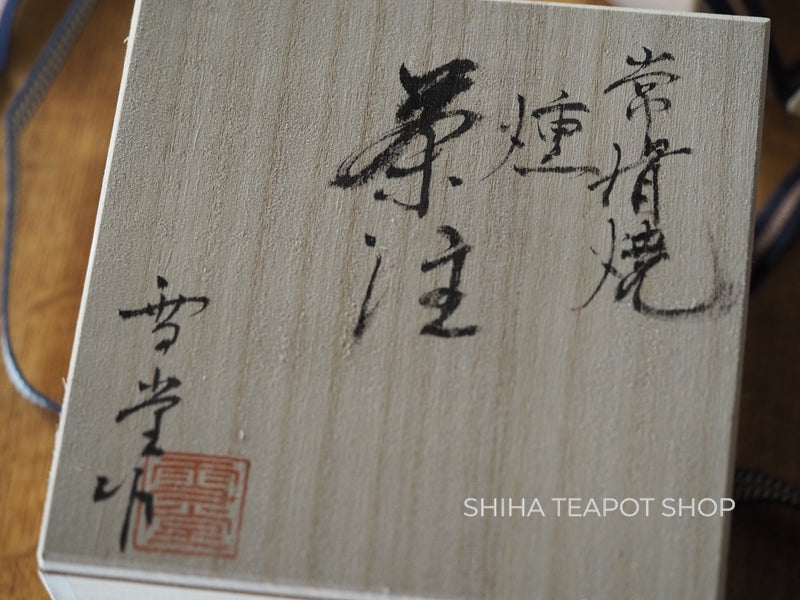 常滑焼
燻
茶注
雪堂作
雪堂
SHIHA TEAPOT SHOP